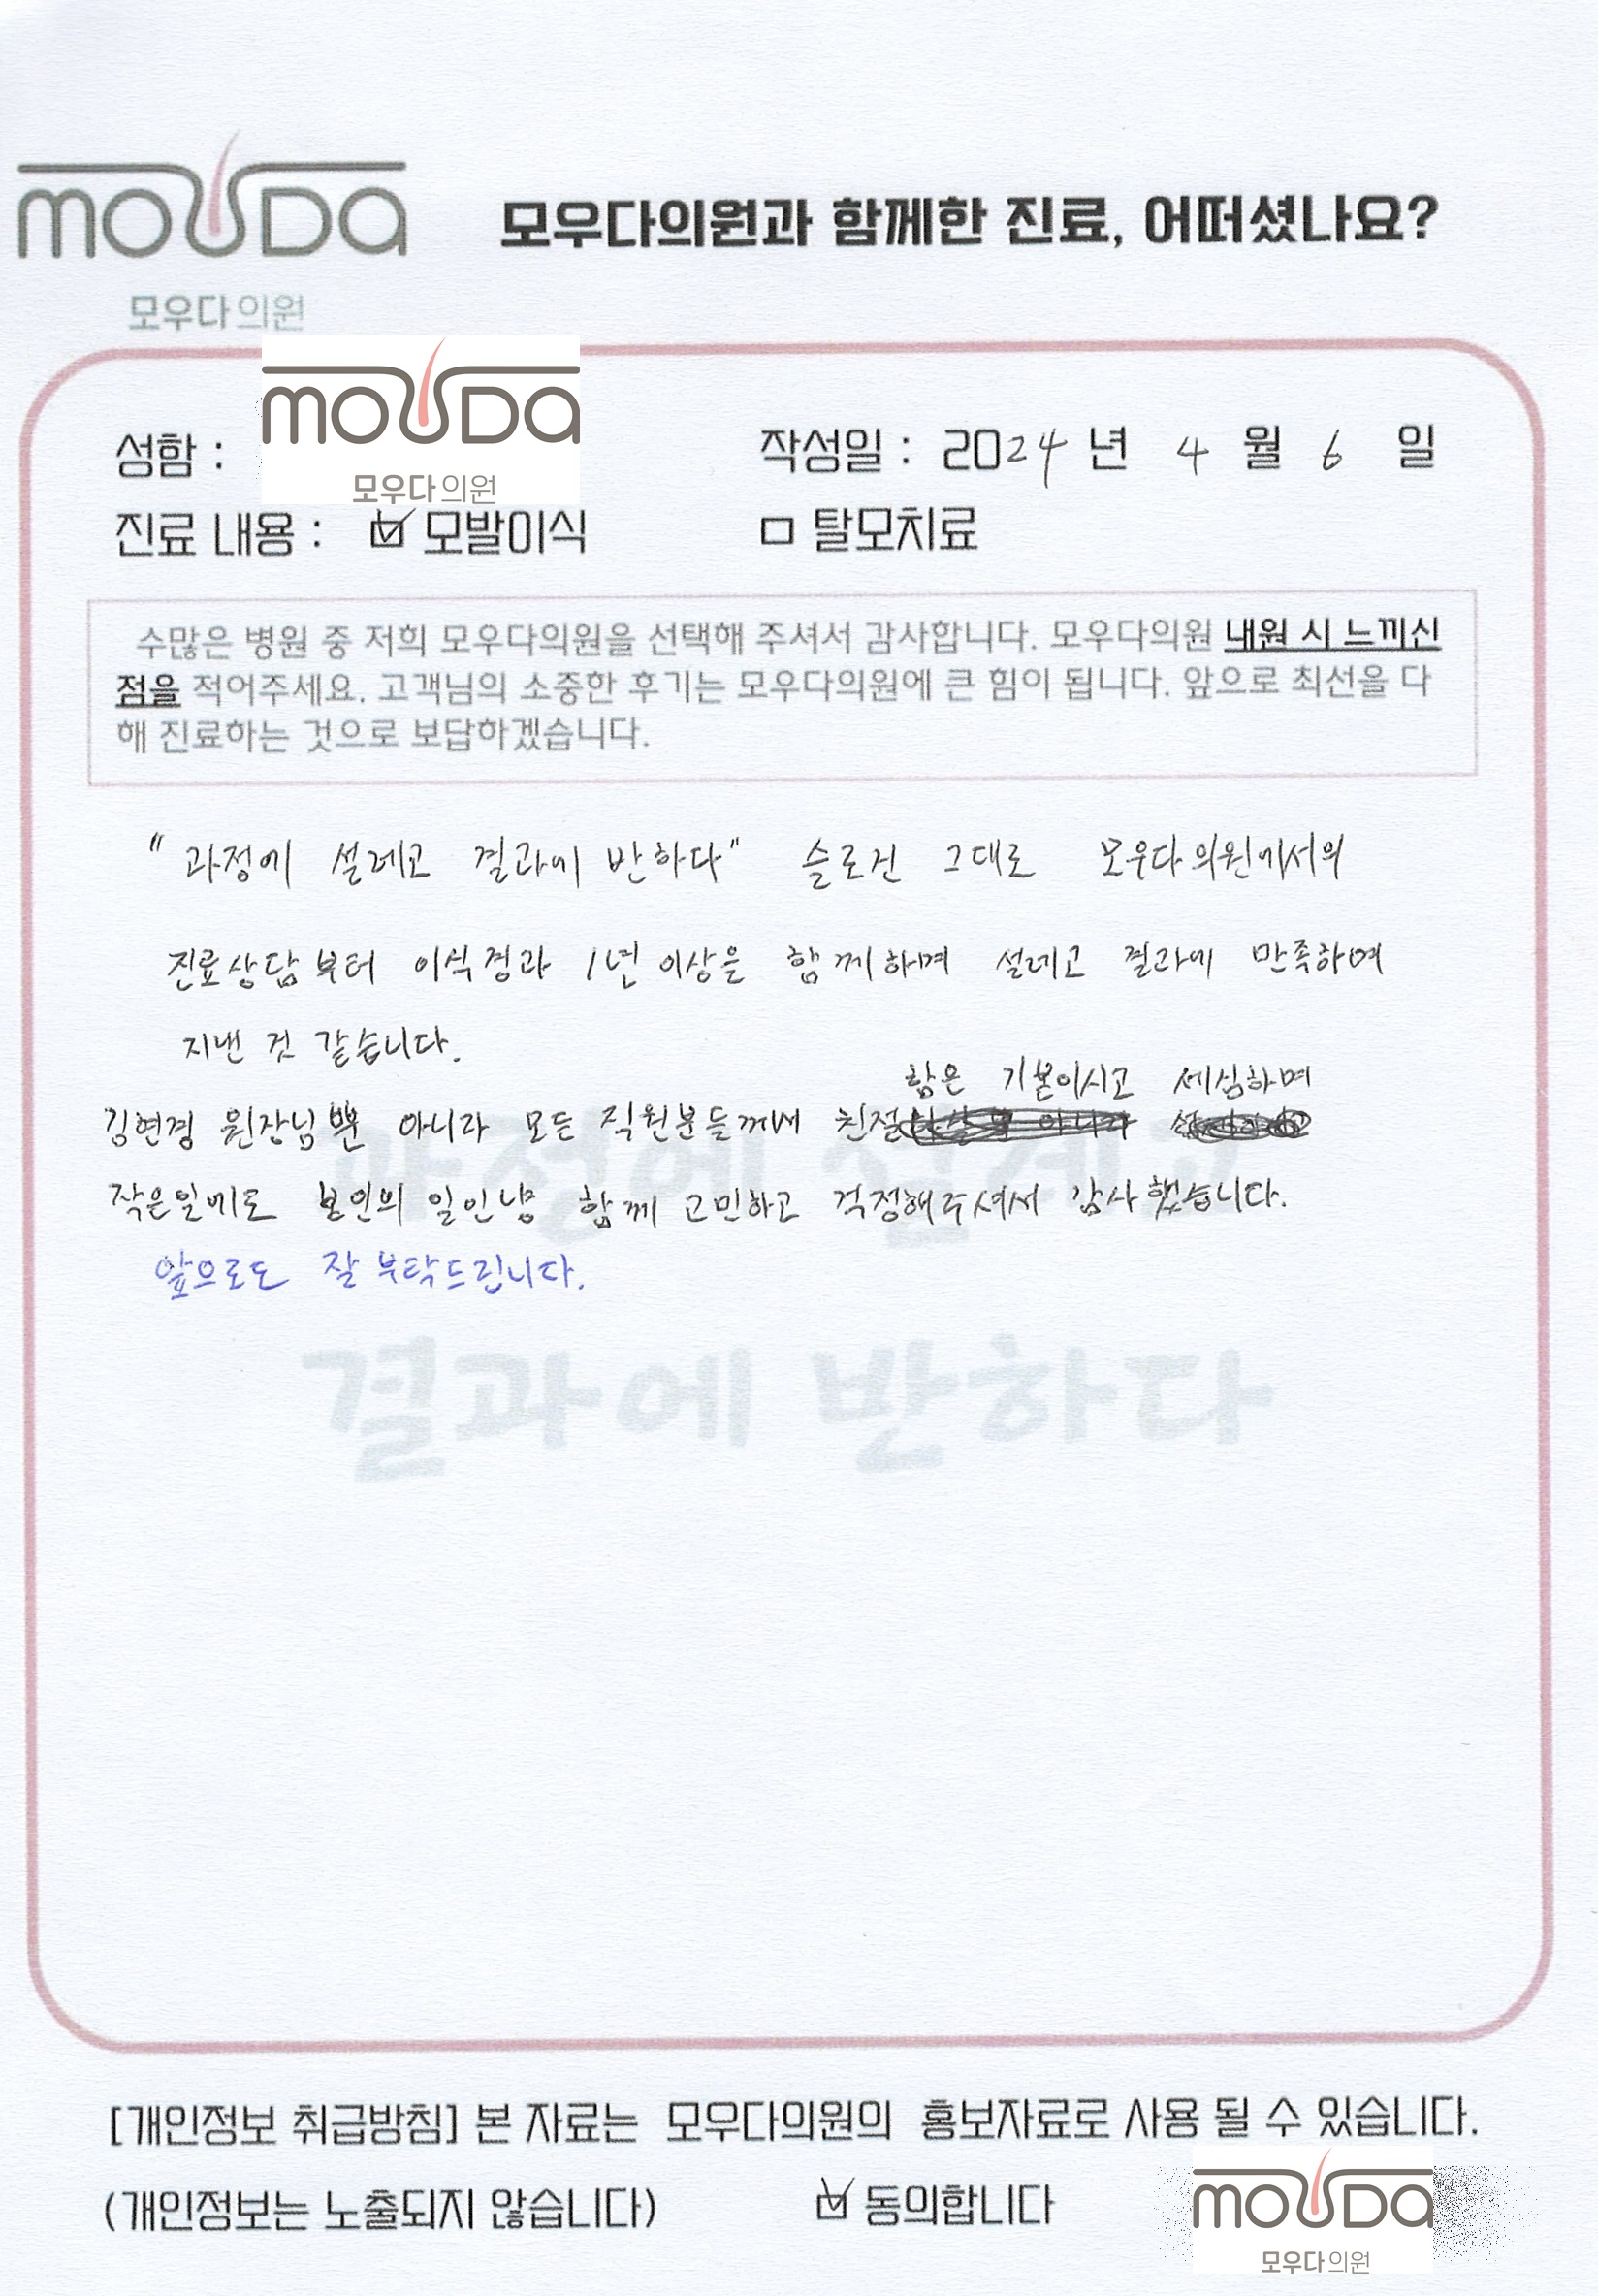 mouda
모우다의원과 함께한 진료, 어떠셨나요?
모우다의원
mouda
모우다의원
성함 :
작성일 : 2024 년 4 월 6 일
진료 내용 : ☑ 모발이식 □ 탈모치료
수많은 병원 중 저희 모우다의원을 선택해 주셔서 감사합니다. 모우다의원 내원 시 느끼신
점을 적어주세요. 고객님의 소중한 후기는 모우다의원에 큰 힘이 됩니다. 앞으로 최선을 다
해 진료하는 것으로 보답하겠습니다.
"과정에 설레고 결과에 반하다" 슬로건 그대로 모우다의원에서의
진료상담부터 이식경과 1년 이상을 함께하며 설레고 결과에 만족하며
지낸 것 같습니다.
함은 기본이시고 세심하며
김현경 원장님뿐 아니라 모든 직원분들께서 친절
작은일에도 본인의 일인냥 함께 고민하고 걱정해주셔서 감사했습니다.
앞으로도 잘 부탁드립니다.
과정에 설레고
결과에 반하다
[개인정보 취급방침] 본 자료는 모우다의원의 홍보자료로 사용 될 수 있습니다.
(개인정보는 노출되지 않습니다) ☑ 동의합니다
mouda
모우다의원